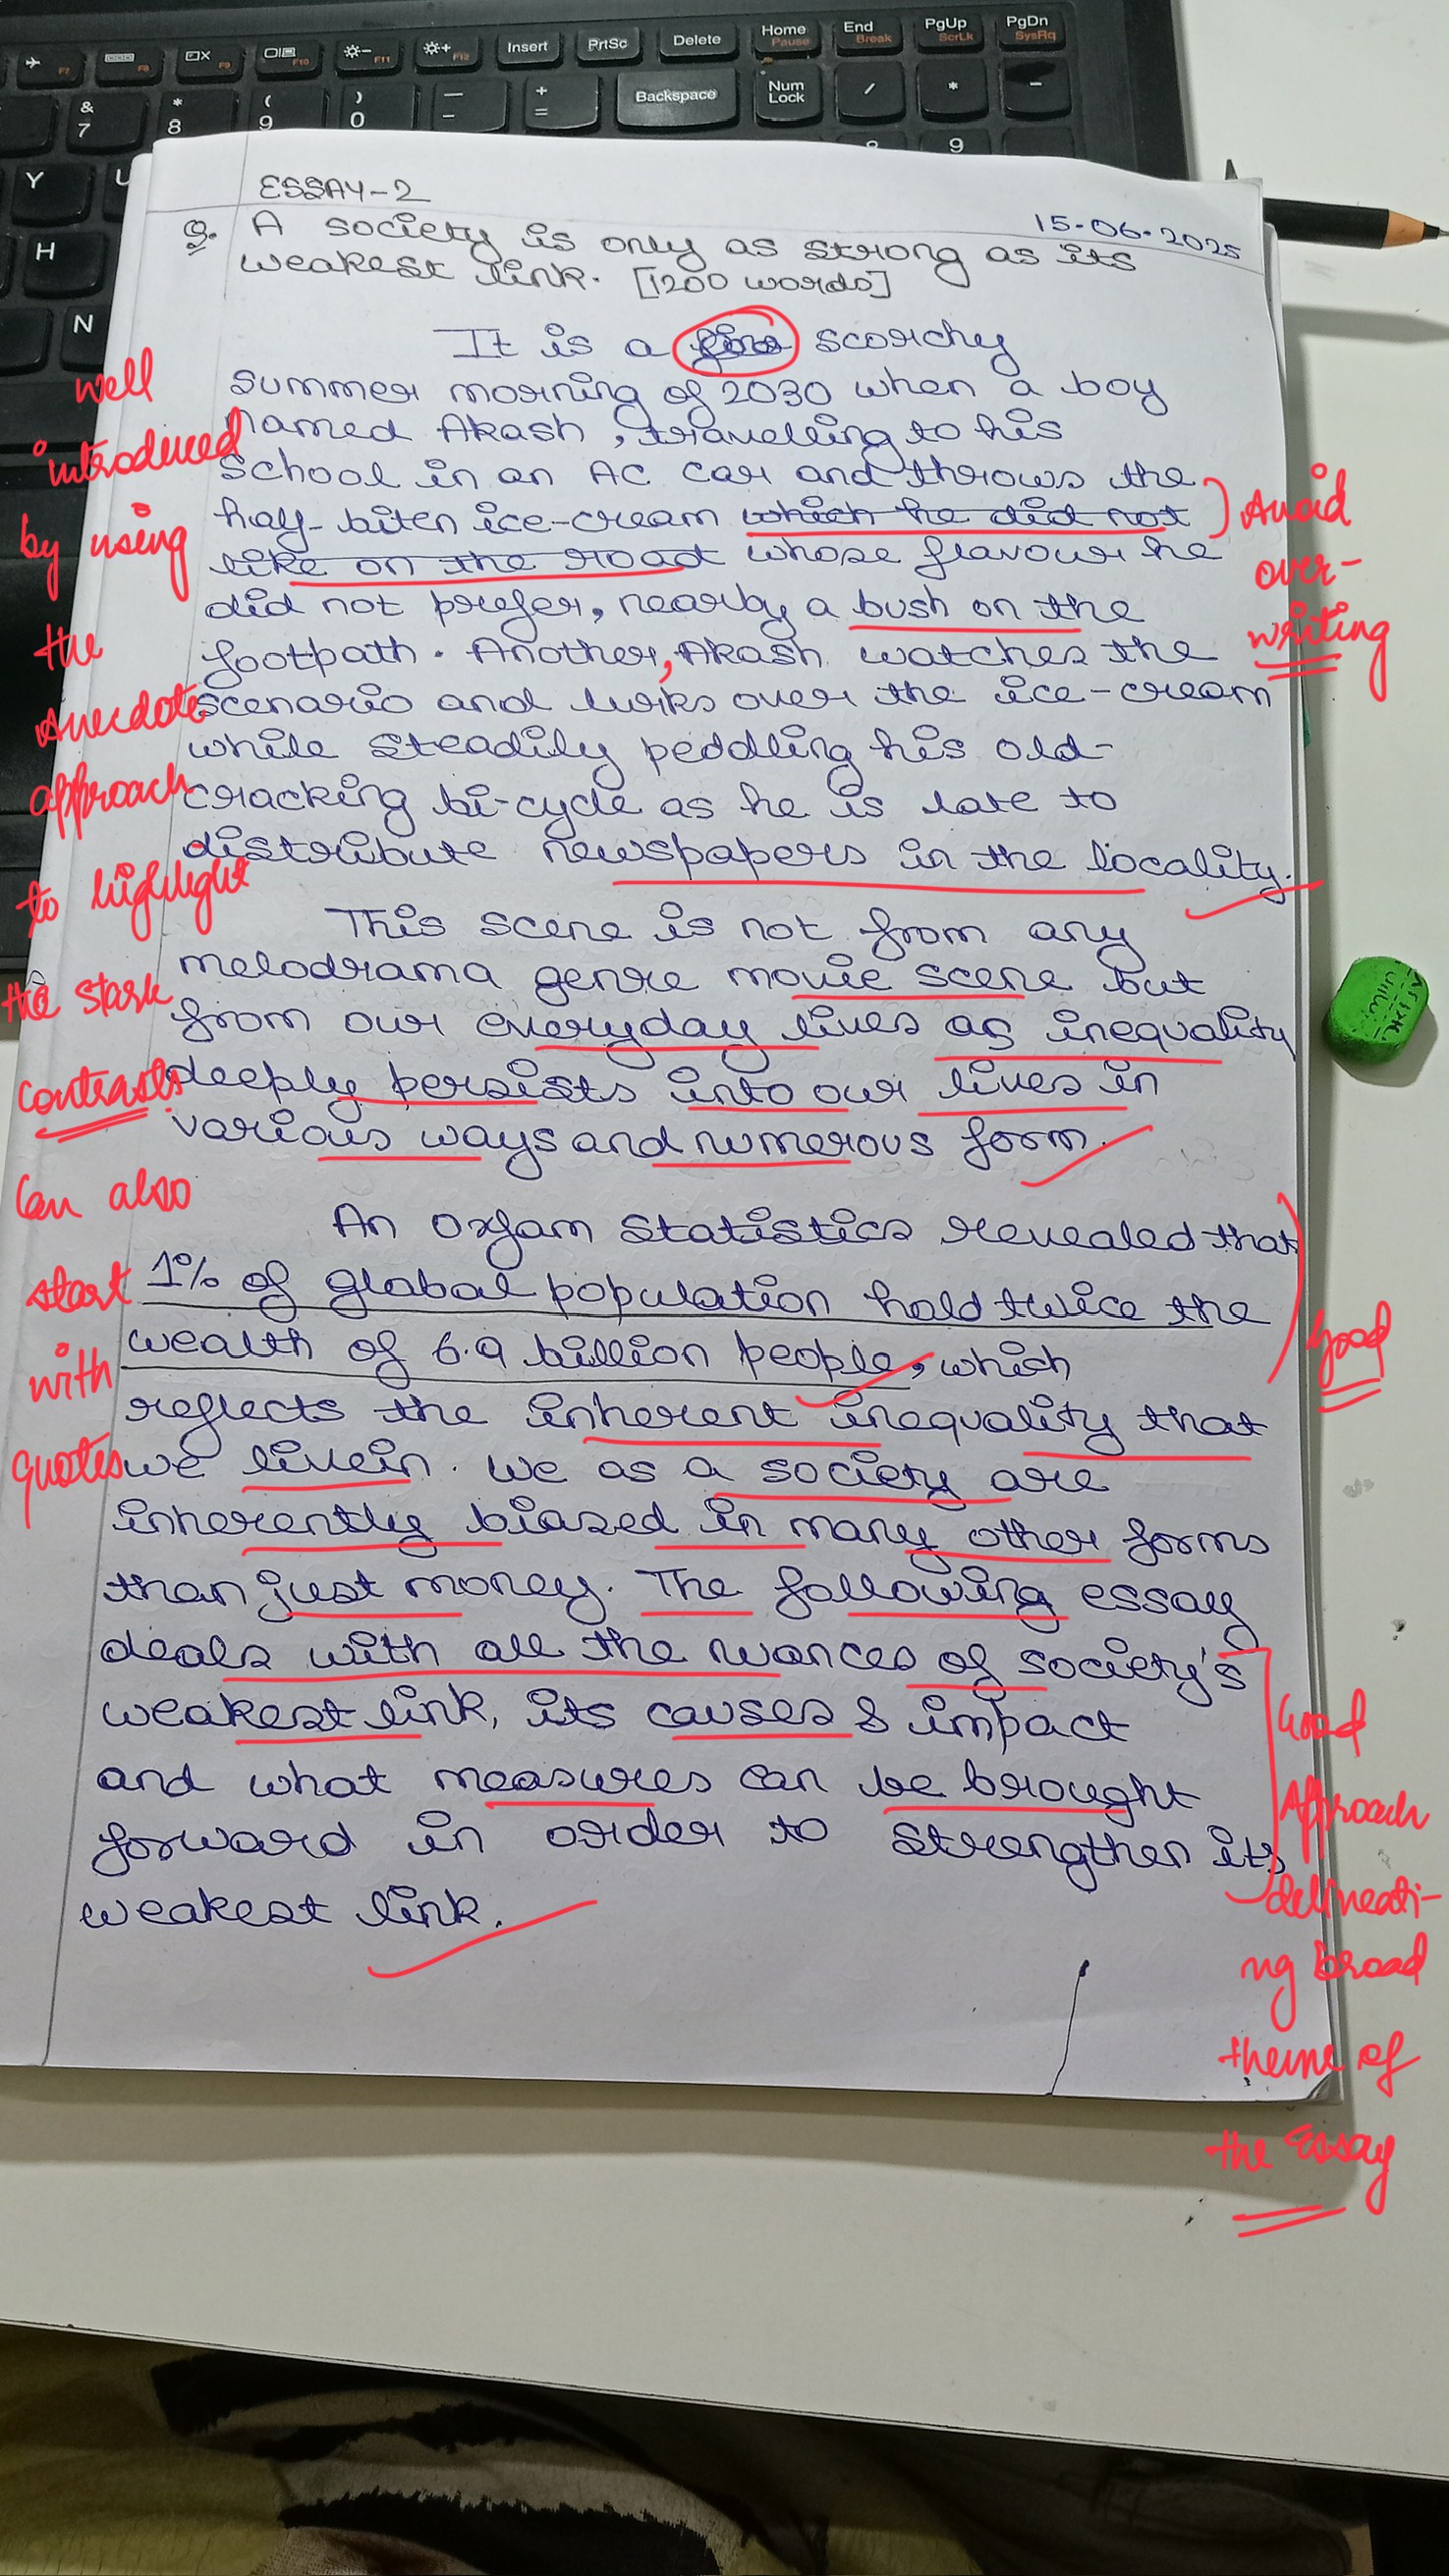 Insert
PrtSc
Delete
Home
Pause
End
Break
PgUp
ScrLk
PgDn
SysRq
F7
F8
F9
F10
F11
F12
& 7
* 8
( 9
) 0
Backspace
Num Lock
/
*
-
9
Y
U
H
N
ESSAY-2
15.06.2025
Q. A society is only as strong as its
weakest link. [1200 words]
It is a scorchy
summer morning of 2030 when a boy
named Akash, travelling to his
school in an AC car and throws the
half-biten ice-cream which he did not
like on the road whose flavour he
did not prefer, nearby a bush on the
footpath. Another, Akash watches the
scenario and lurks over the ice-cream
while steadily peddling his old-
cracking bi-cycle as he is late to
distribute newspapers in the locality.
This scene is not from any
melodrama genre movie scene but
from our everyday lives as inequality
deeply persists into our lives in
various ways and numerous form.
An Oxfam Statistics revealed that
1% of global population hold twice the
wealth of 6.9 billion people, which
reflects the inherent inequality that
we live in. We as a society are
inherently biased in many other forms
than just money. The following essay
deals with all the nuances of society's
weakest link, its causes & impact
and what measures can be brought
forward in order to strengthen its
weakest link.
well
introduced
by using
the
Anecdote
approach
to highlight
the stark
contrasts
Can also
start
with
quotes
Avoid
over-
writing
Good
Good
Approach
delineati-
ng broad
theme of
the Essay